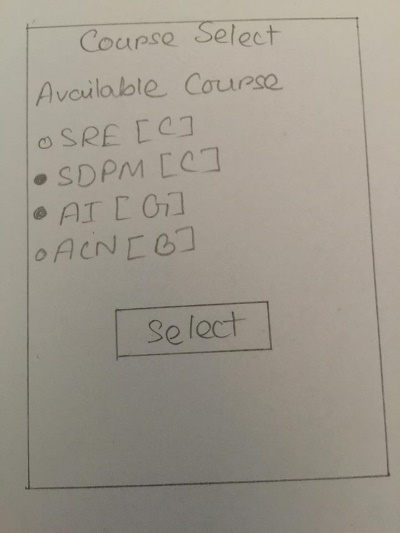 Course Select
Available Course
SRE [C]
SDPM [C]
AI [G]
ACN [B]
Select